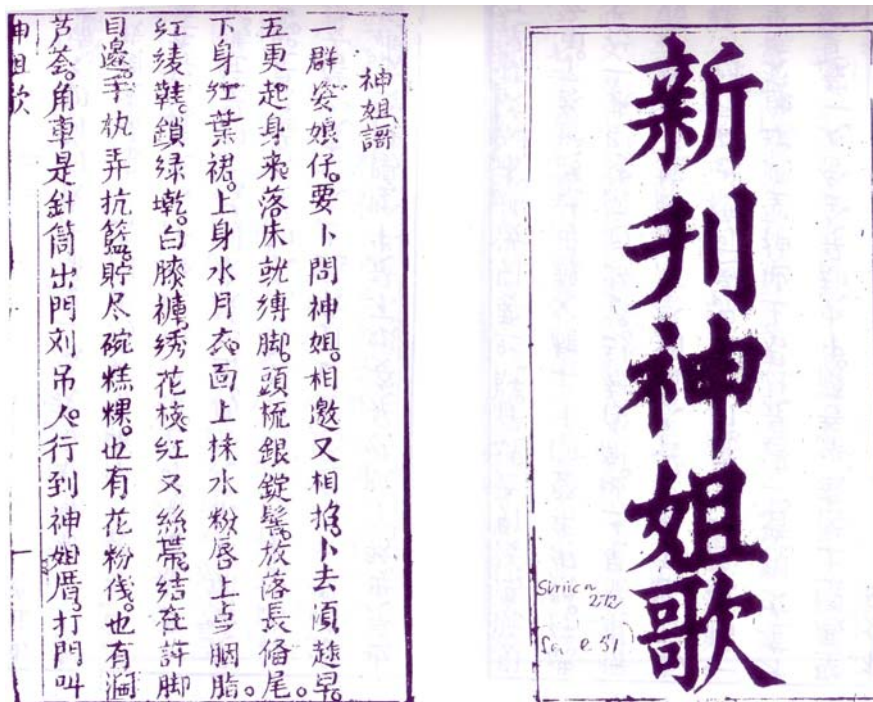 新刊神姐歌
272
神姐謌
一群姿娘仔。要卜問神姐。相邀又相掐。卜去湏趂早。
五更起身来。落床就縛脚。頭梳銀錠髻。放落長俻尾。
下身紅葉裙。上身水月衣。面上抹水粉。唇上点胭脂。
紅綾鞋。鎖绿墘。白膝褲。綉花栈。紅又絲帶。結在許脚
目邊。手执弄抗籃。貯尽碗糕粿。也有花粉伐。也有
芦荟。角車是針筒。出門刘吊人。行到神姐厝。打門叫
神姐歌
一